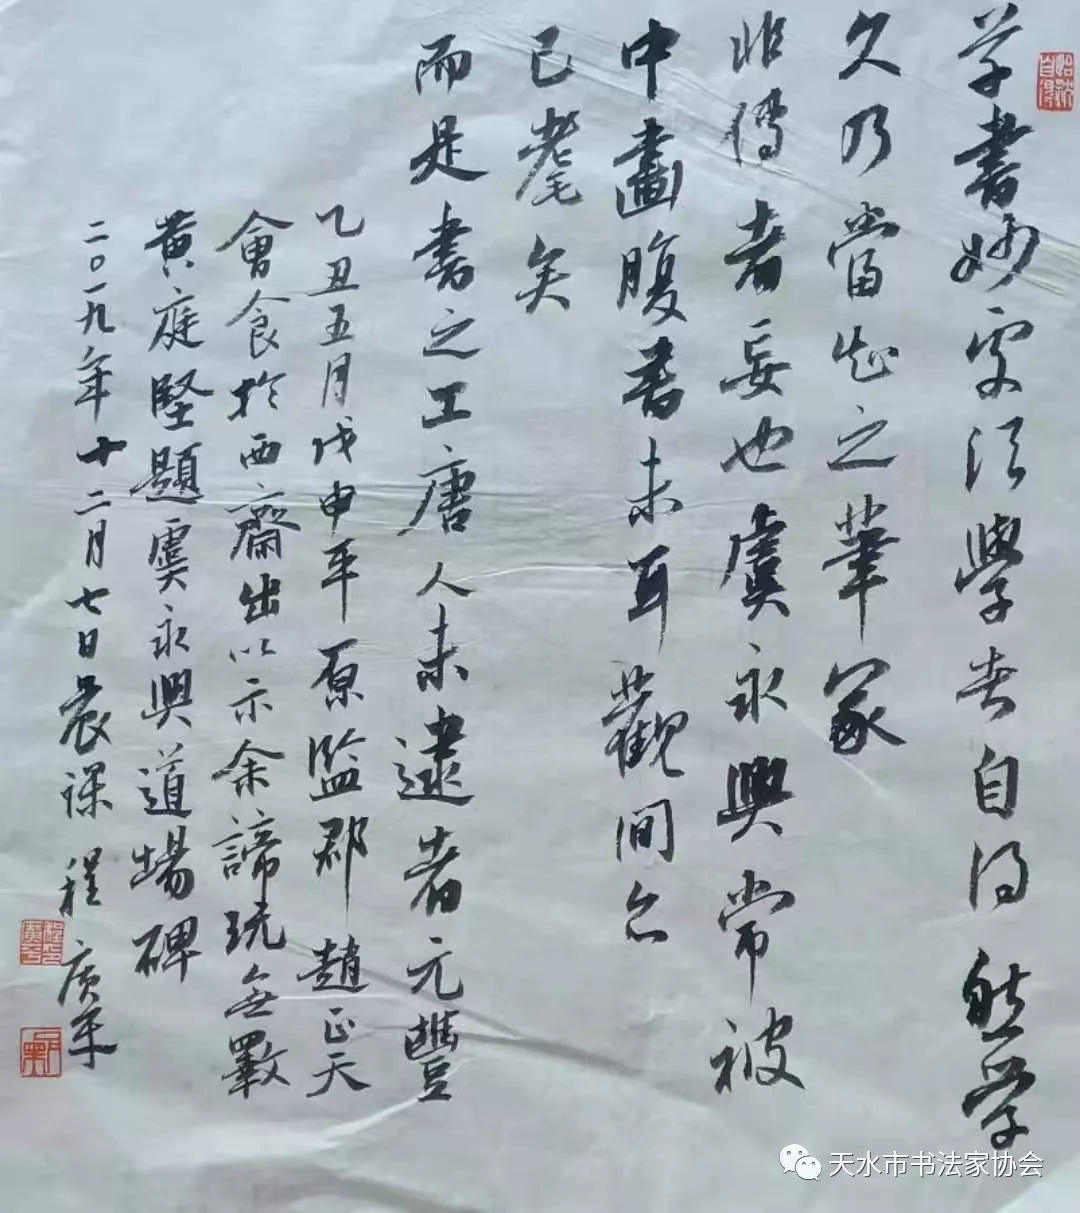 学書妙字須學者自得然学
久乃當知之筆冢
非傳者妄也虞永興常被
中畫腹書末耳觀間亦
已耄矣
而是書之工唐人未逮者元豐
乙丑五月戊申平原監郡趙正夫
會食於西齋出以示余諦玩無斁
黄庭堅題虞永興道場碑
二〇一九年十二月七日晨課程庚年
怡然自得
天水市书法家协会